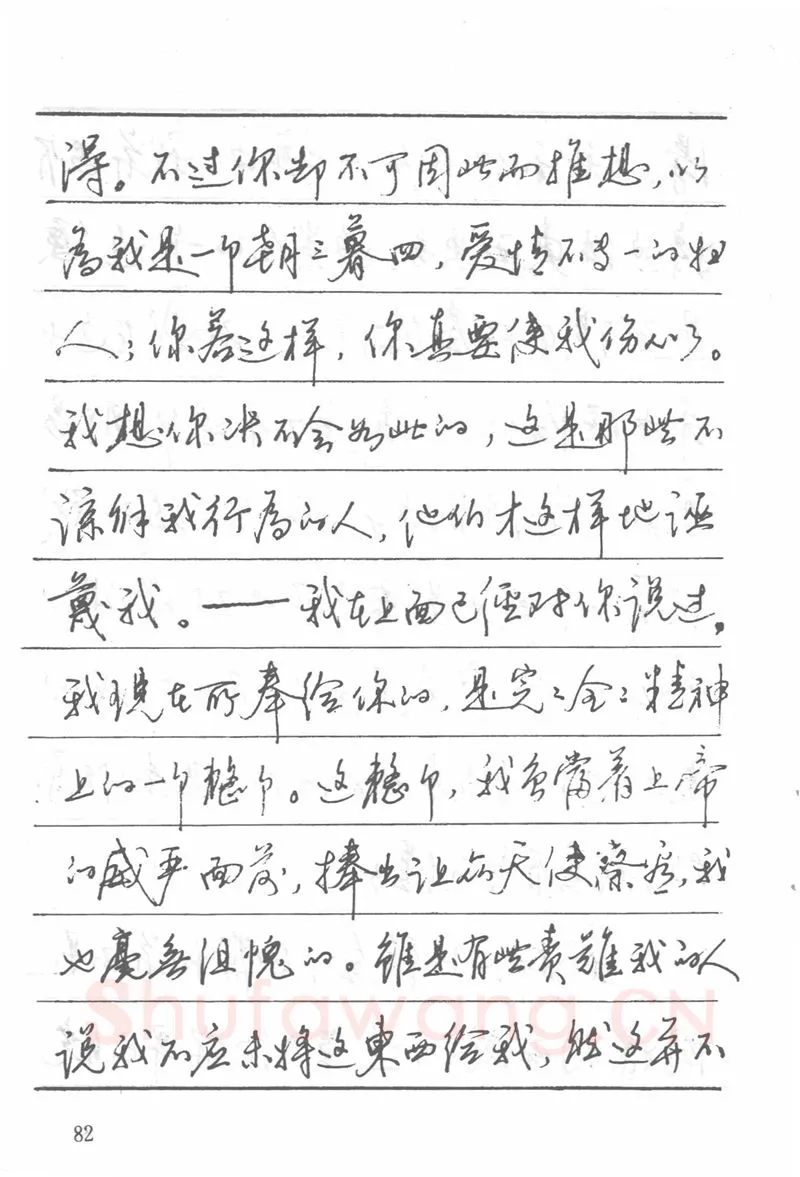 得。不过你却不可因此而推想，以
为我是一个朝三暮四，爱情不专一的
人；你若这样，你真要使我伤心了。
我想你决不会如此的，这是那些不
谅解我行为的人，他们才这样地诬
蔑我。——我在上面已經对你说过，
我现在所奉给你的，是完完全全精神
上的一个整个。这整个，我負當着上帝
的威严面前，捧出让众天使察看，我
也毫無沮愧的。雖是有些责難我的人
说我不应未将这東西给我，然这并不
82
Shufawang.CN